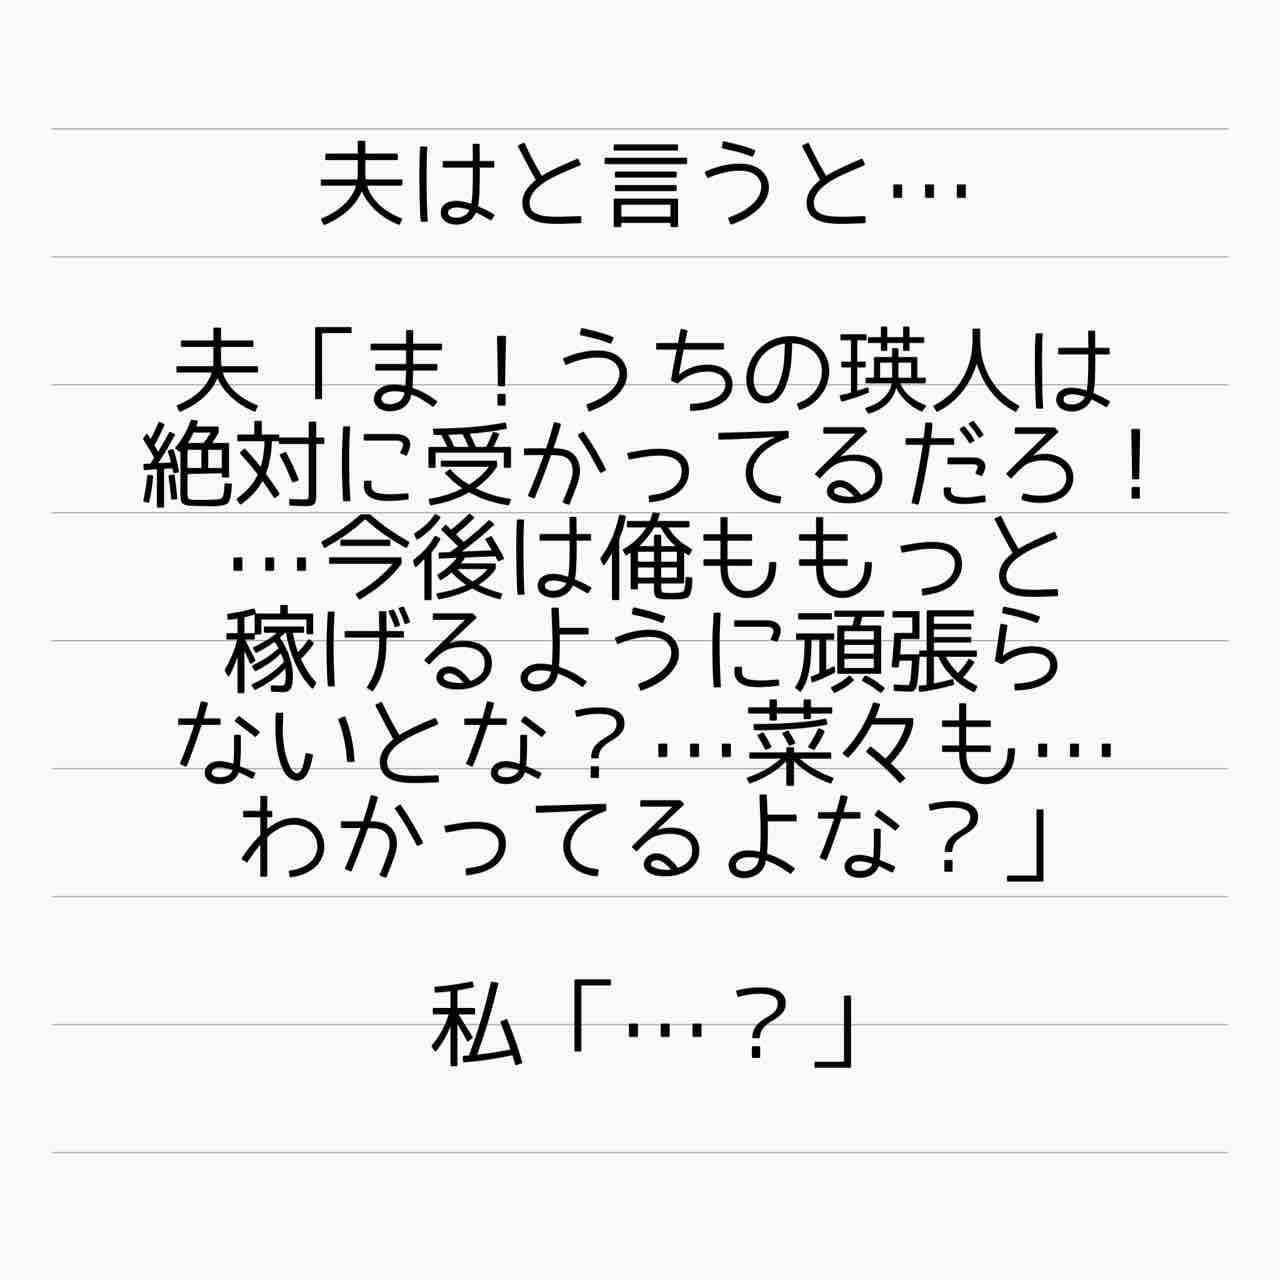 夫はと言うと…
夫「ま！うちの瑛人は
絶対に受かってるだろ！
…今後は俺ももっと
稼げるように頑張ら
ないとな？…菜々も…
わかってるよな？」
私「…？」